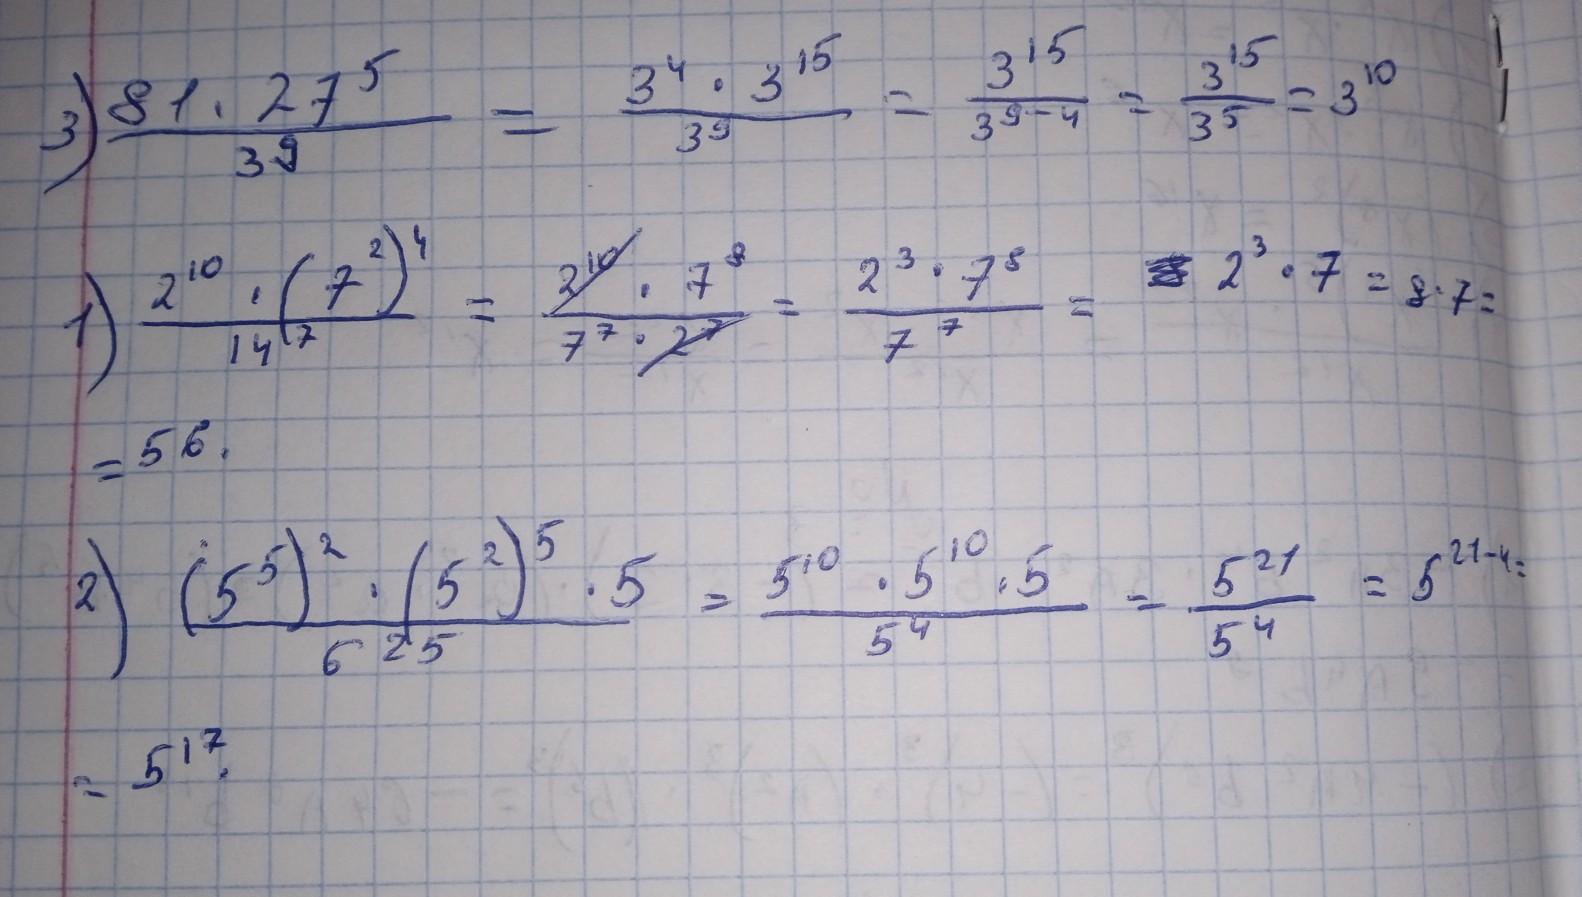 3) 81 · 27^5 / 3^9 = 3^4 · 3^15 / 3^9 = 3^15 / 3^(9-4) = 3^15 / 3^5 = 3^10
1) 2^10 · (7^2)^4 / 14^7 = 2^10 · 7^8 / 7^7 · 2^7 = 2^3 · 7^8 / 7^7 = 2^3 · 7 = 8 · 7 =
= 56.
2) (5^5)^2 · (5^2)^5 · 5 / 625 = 5^10 · 5^10 · 5 / 5^4 = 5^21 / 5^4 = 5^(21-4) =
= 5^17.